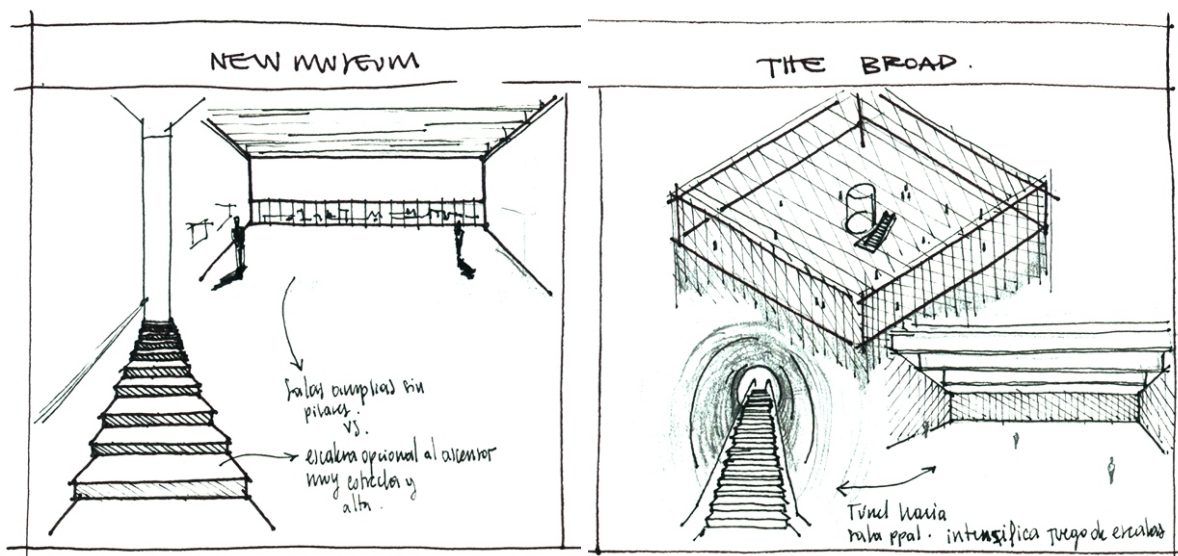 NEW MUSEUM
Salas amplias sin
pilares.
vs.
escalera opcional al ascensor
muy estrecha y
alta.
THE BROAD.
Tunel hacia
sala ppal. intensifica juego de escalas